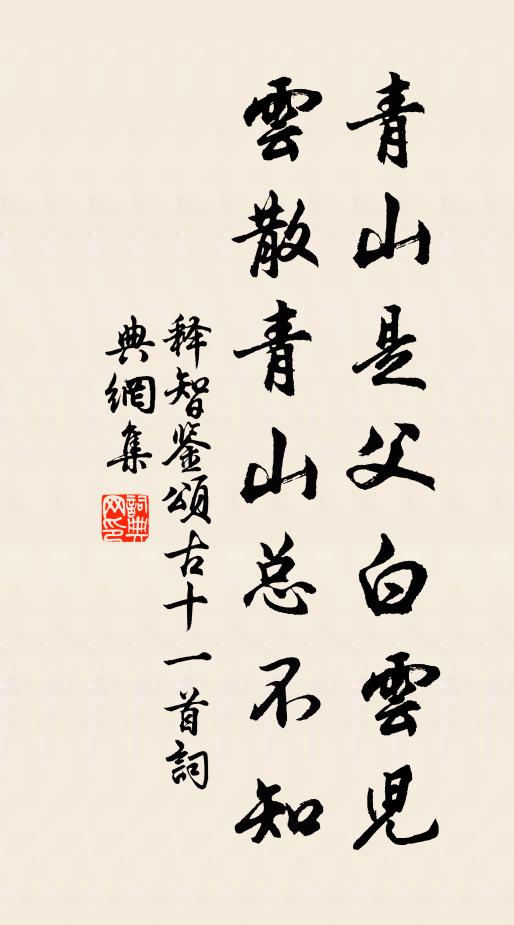 青山是父白雲児
雲散青山总不知
释智鉴頌古十一首詞
典網集
詞典网印